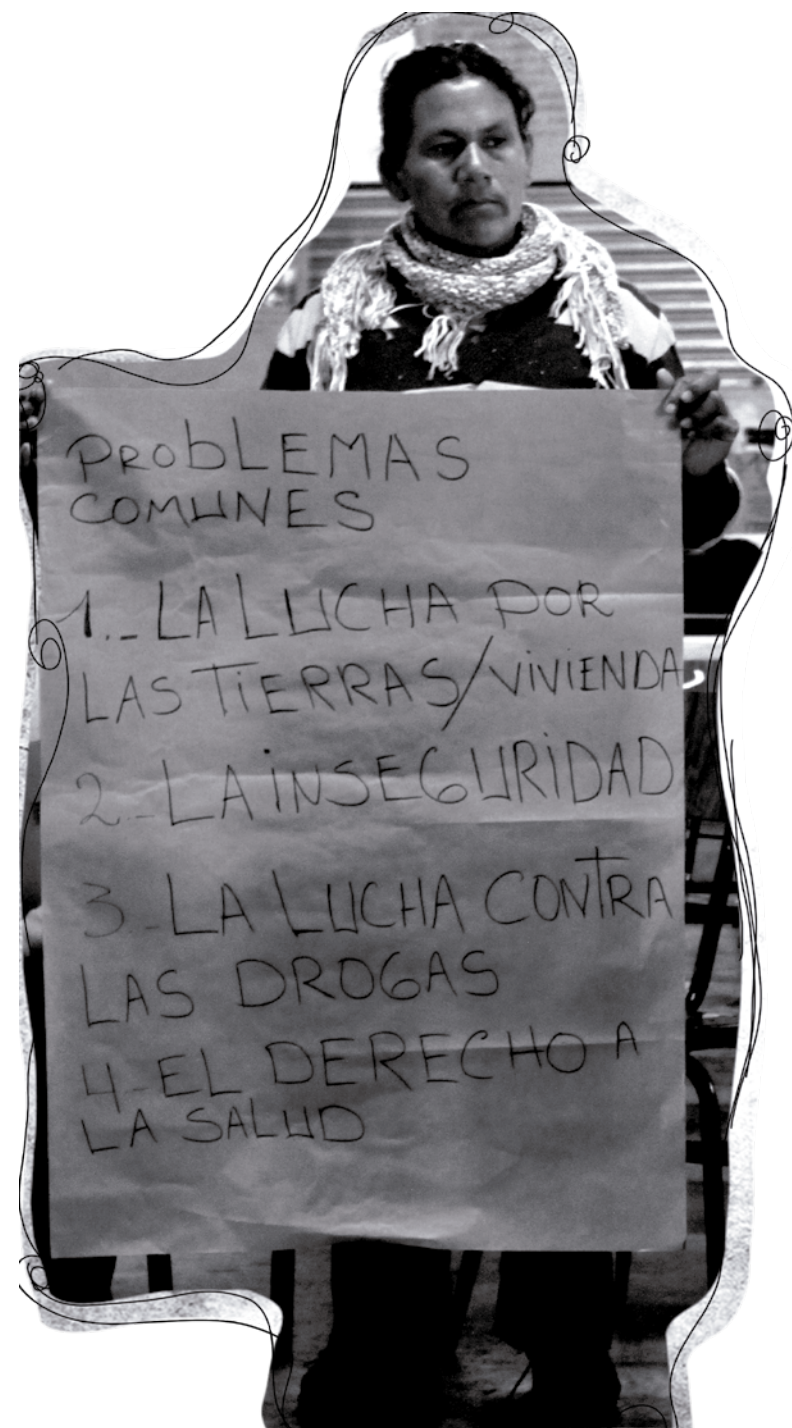 PRObLEMAS
COMUNES
1.- LA LUCHA POR
LAS TiERRAS/ViViENDA
2.- LA iNSEGURiDAD
3.- LA LUCHA CONTRA
LAS DROGAS
4- EL DERECHO A
LA SALUD